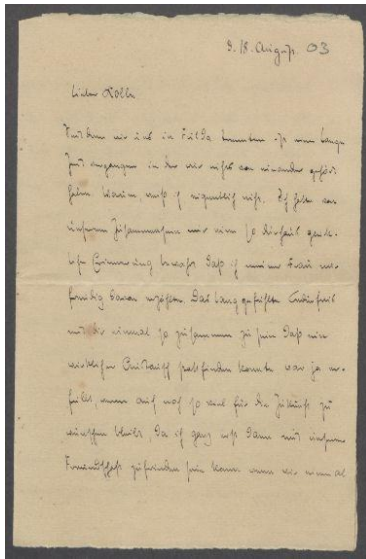 d. 18. August. 03
Lieber Kolbe
Seitdem wir uns in Fulda trennten ist eine lange
Zeit vergangen in der wir nichts von einander gehört
haben. Warum, weiß ich eigentlich nicht. Ich habe von
unserem Zusammensein mir eine so durchaus
Erinnerung bewahrt daß ich meiner Frau
freudig davon erzählte. Das lang gefühlte Bedürfnis
mit dir einmal so zusammen zu sein daß ein
wirklicher Austausch stattfinden konnte war ja er-
füllt, wenn auch noch so viel für die Zukunft zu
wünschen bleibt, da ich ganz erst dann mit unserer
Freundschaft zufrieden sein kann wenn wir einmal